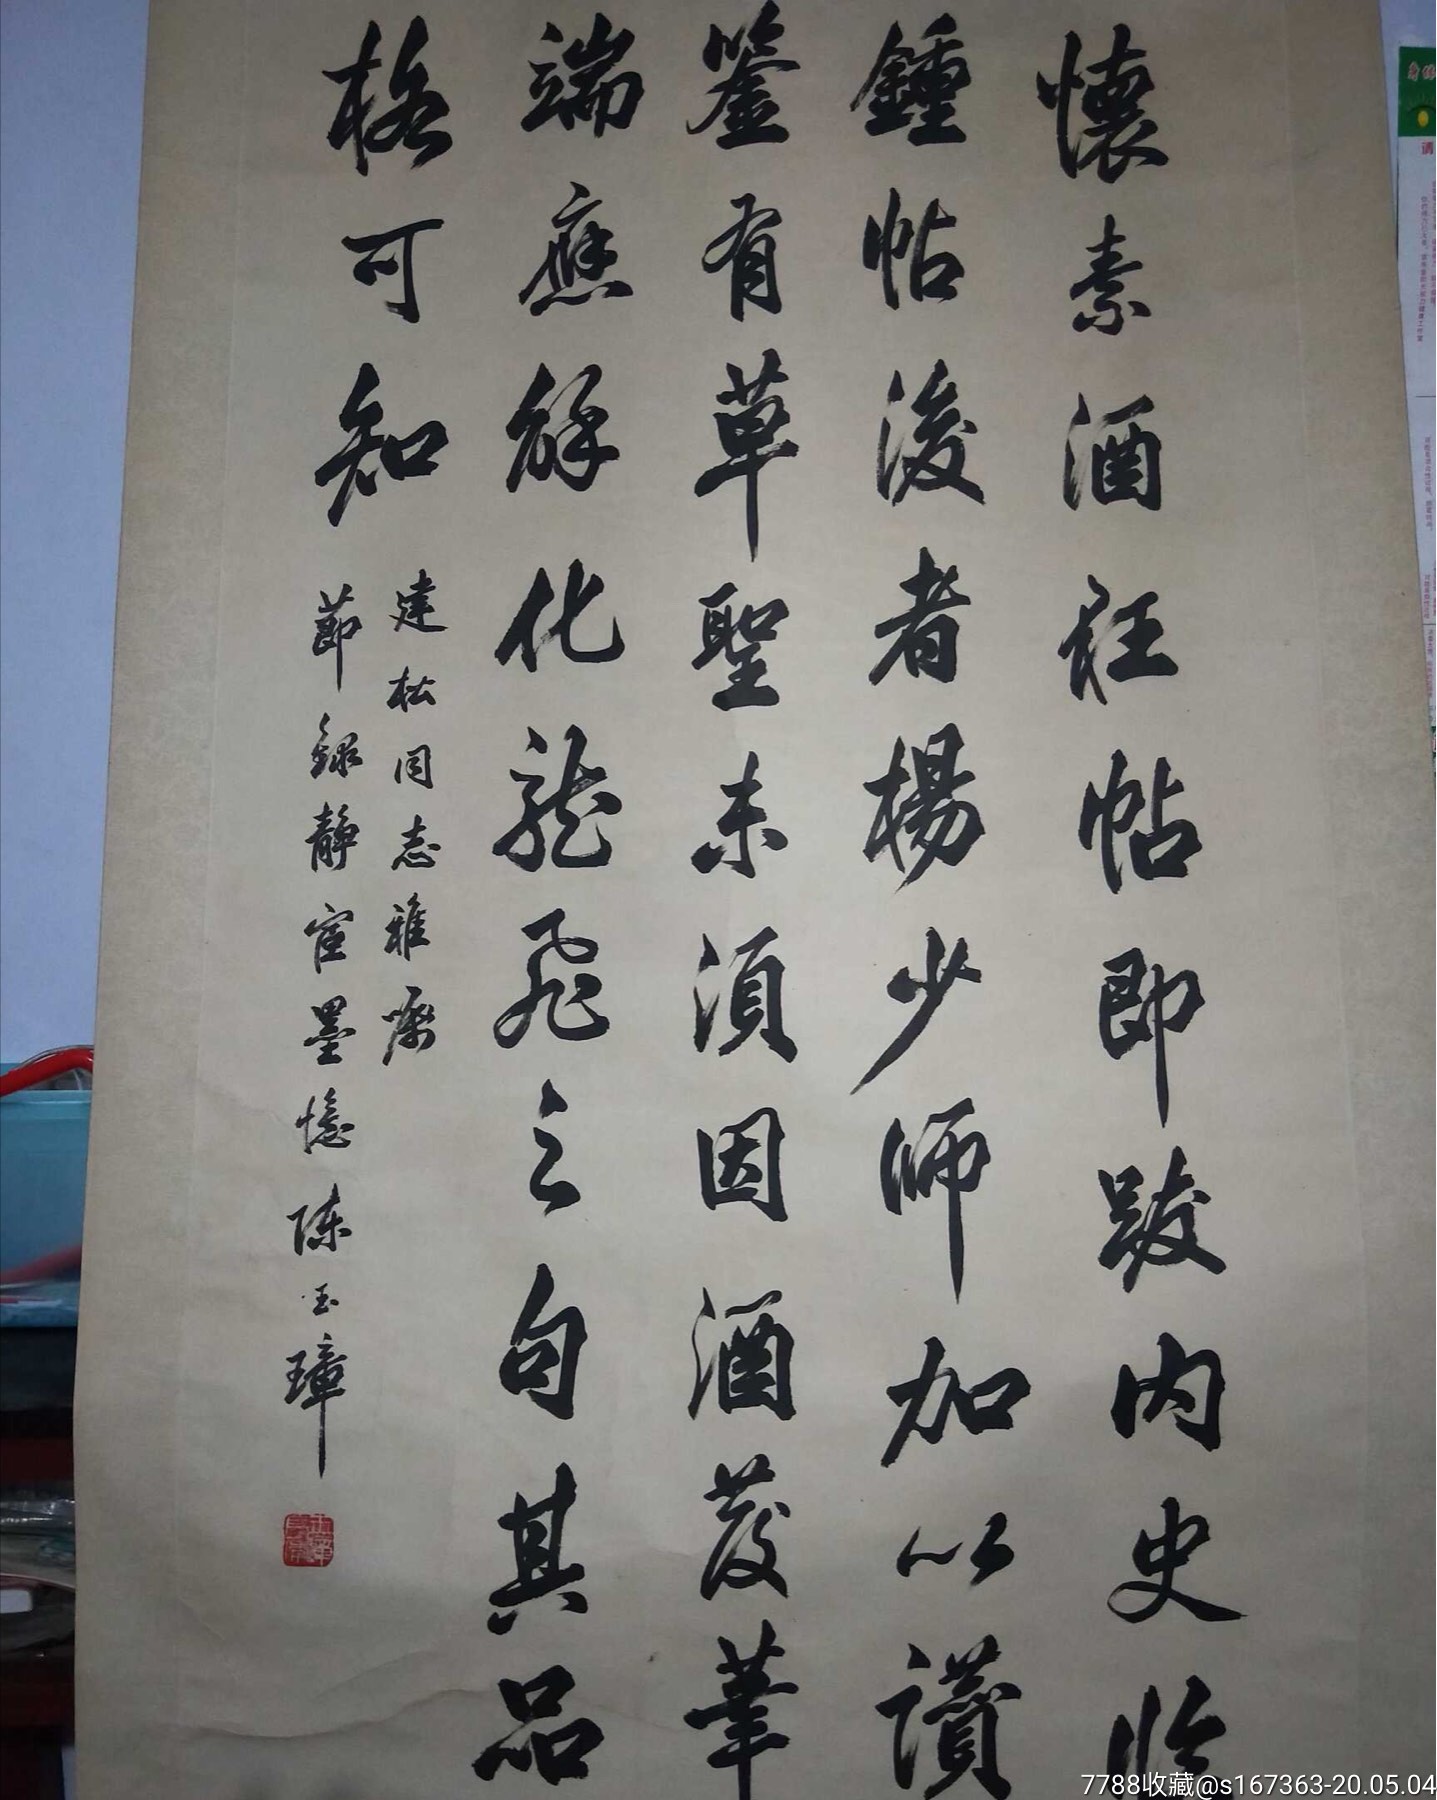 懷素酒狂帖即跋内史臨
鍾帖後者楊少師加以讚
鑒有草聖未須因酒發筆
端應解化龍飛之句其品
格可知
建松同志雅屬
節錄靜宧墨憶 陈玉璋
7788收藏@s167363-20.05.04